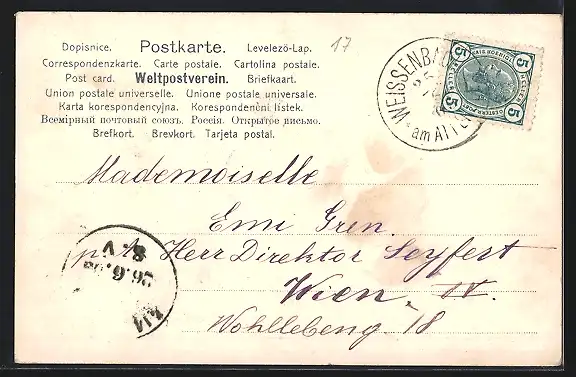 Dopisnice. Postkarte. Levelező-Lap. 17
Correspondenzkarte. Carte postale. Cartolina postale.
Post card. Weltpostverein. Briefkaart.
Union postale universelle. Unione postale universale.
Karta korespondencyjna. Korespondenční lístek.
Всемірный почтовый союзъ. Россія. Открытое письмо.
Brefkort. Brevkort. Tarjeta postal.
WEISSENBA
25
am ATTE
5 5
5 5
Mademoiselle
Emi Gren.
p. A. Herr Direktor Seyfert
Wien, IV.
Wohllebeng 18
8. V
26.6.